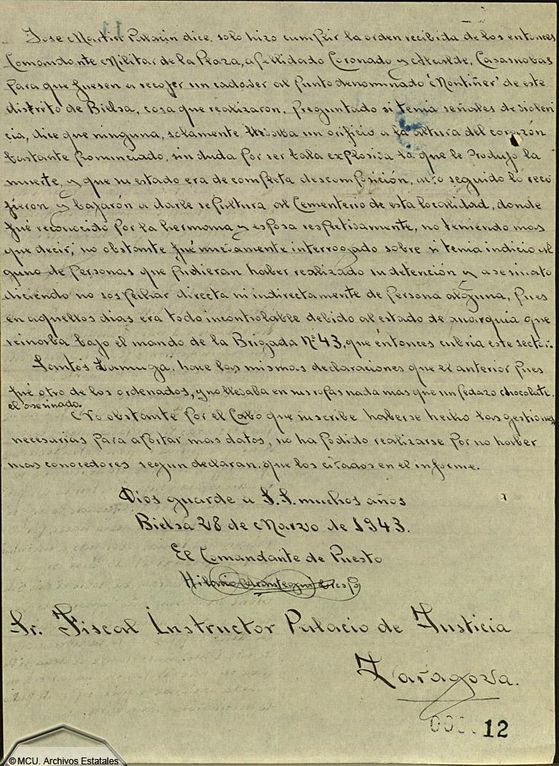 Jose Martin Palacin dice, solo hizo cumplir la orden recibida de los entonces
Comandante Militar de la Plaza, apellidado Coronado y Alcalde, Casasnobas
para que fuesen a recojer un cadaver al punto denominado "Montiñer" de este
distrito de Bielsa, cosa que realizaron, preguntado si tenia señales de violen-
cia, dice que ninguna, solamente llebaba un orificio a la altura del corazon
bastante pronunciado, sin duda por ser bala explosiva la que le produjo la
muerte, y que su estado era de completa descomposición, acto seguido lo reco-
jieron y bajaron a darle sepultura al Cementerio de esta localidad, donde
fué reconocido por la hermana y esposa respetivamente, no teniendo mas
que decir; no obstante fué nuevamente interrogado sobre si tenia indicio al-
guno de personas que pudieran haber realizado su detención y asesinato
diciendo no sospechar directa ni indirectamente de persona alguna, pues
en aquellos dias era todo incontrolable debido al estado de anarquia que
reinaba bajo el mando de la Brigada Nº 43, que entonces cubria este sector.
Lamuga, hace las mismas declaraciones que el anterior pues
fué otro de los ordenados, y no llejaba en sus ropas nada mas que un pedazo chocolate
el asesinado.
No obstante por el Cabo que suscribe haberse hecho las gestiones
necesarias para aportar mas datos, no ha podido realizarse por no haber
mas conocedores segun declaran, que los citados en el informe.
Dios guarde a S.S. muchos años
Bielsa 28 de Marzo de 1943.
El Comandante de Puesto
Sr. Fiscal Instructor Palacio de Justicia
Zaragoza.
12
© MCU. Archivos Estatales